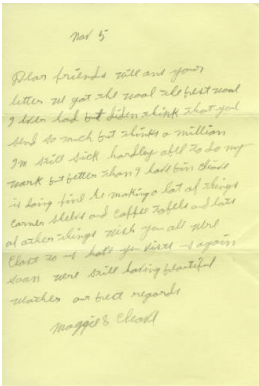 Nov 5
Dear friends will and yours
letter we got the wool the best wool
I ever had but diden think that you
send so much but thinks a million
I'm still sick hardley able to do my
work but better than I have bin
is doing fine he making a lot of things
corner shelves and coffee tables and lots
of other things wish you all were
close to us hope you visit us again
soon were still having beautiful
weather our best regards
Maggie &